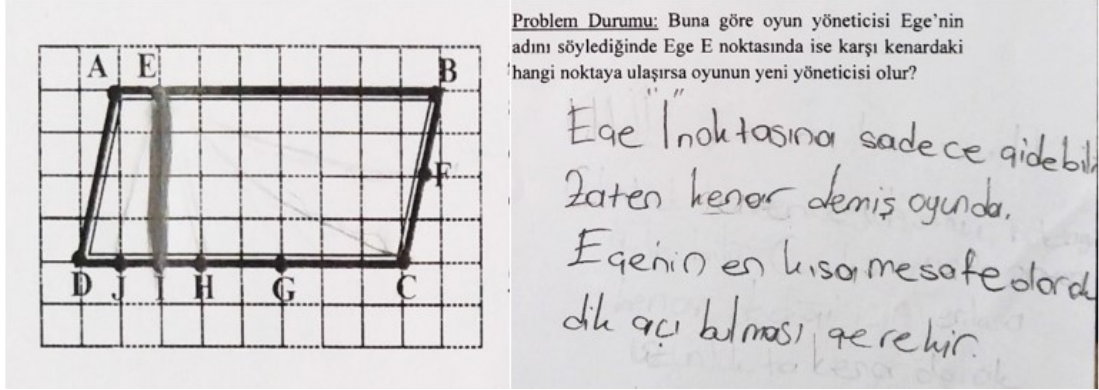 A E B
F
D J I H G C
Problem Durumu: Buna göre oyun yöneticisi Ege'nin
adını söylediğinde Ege E noktasında ise karşı kenardaki
hangi noktaya ulaşırsa oyunun yeni yöneticisi olur?
Ege "I" noktasına sadece gidebilir
Zaten kenar demiş oyunda.
Egenin en kısa mesafe olarak
dik açı bulması gerekir.